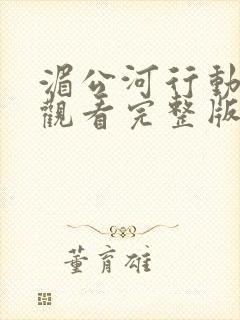 湄公河行動
觀看完整版
董育雄